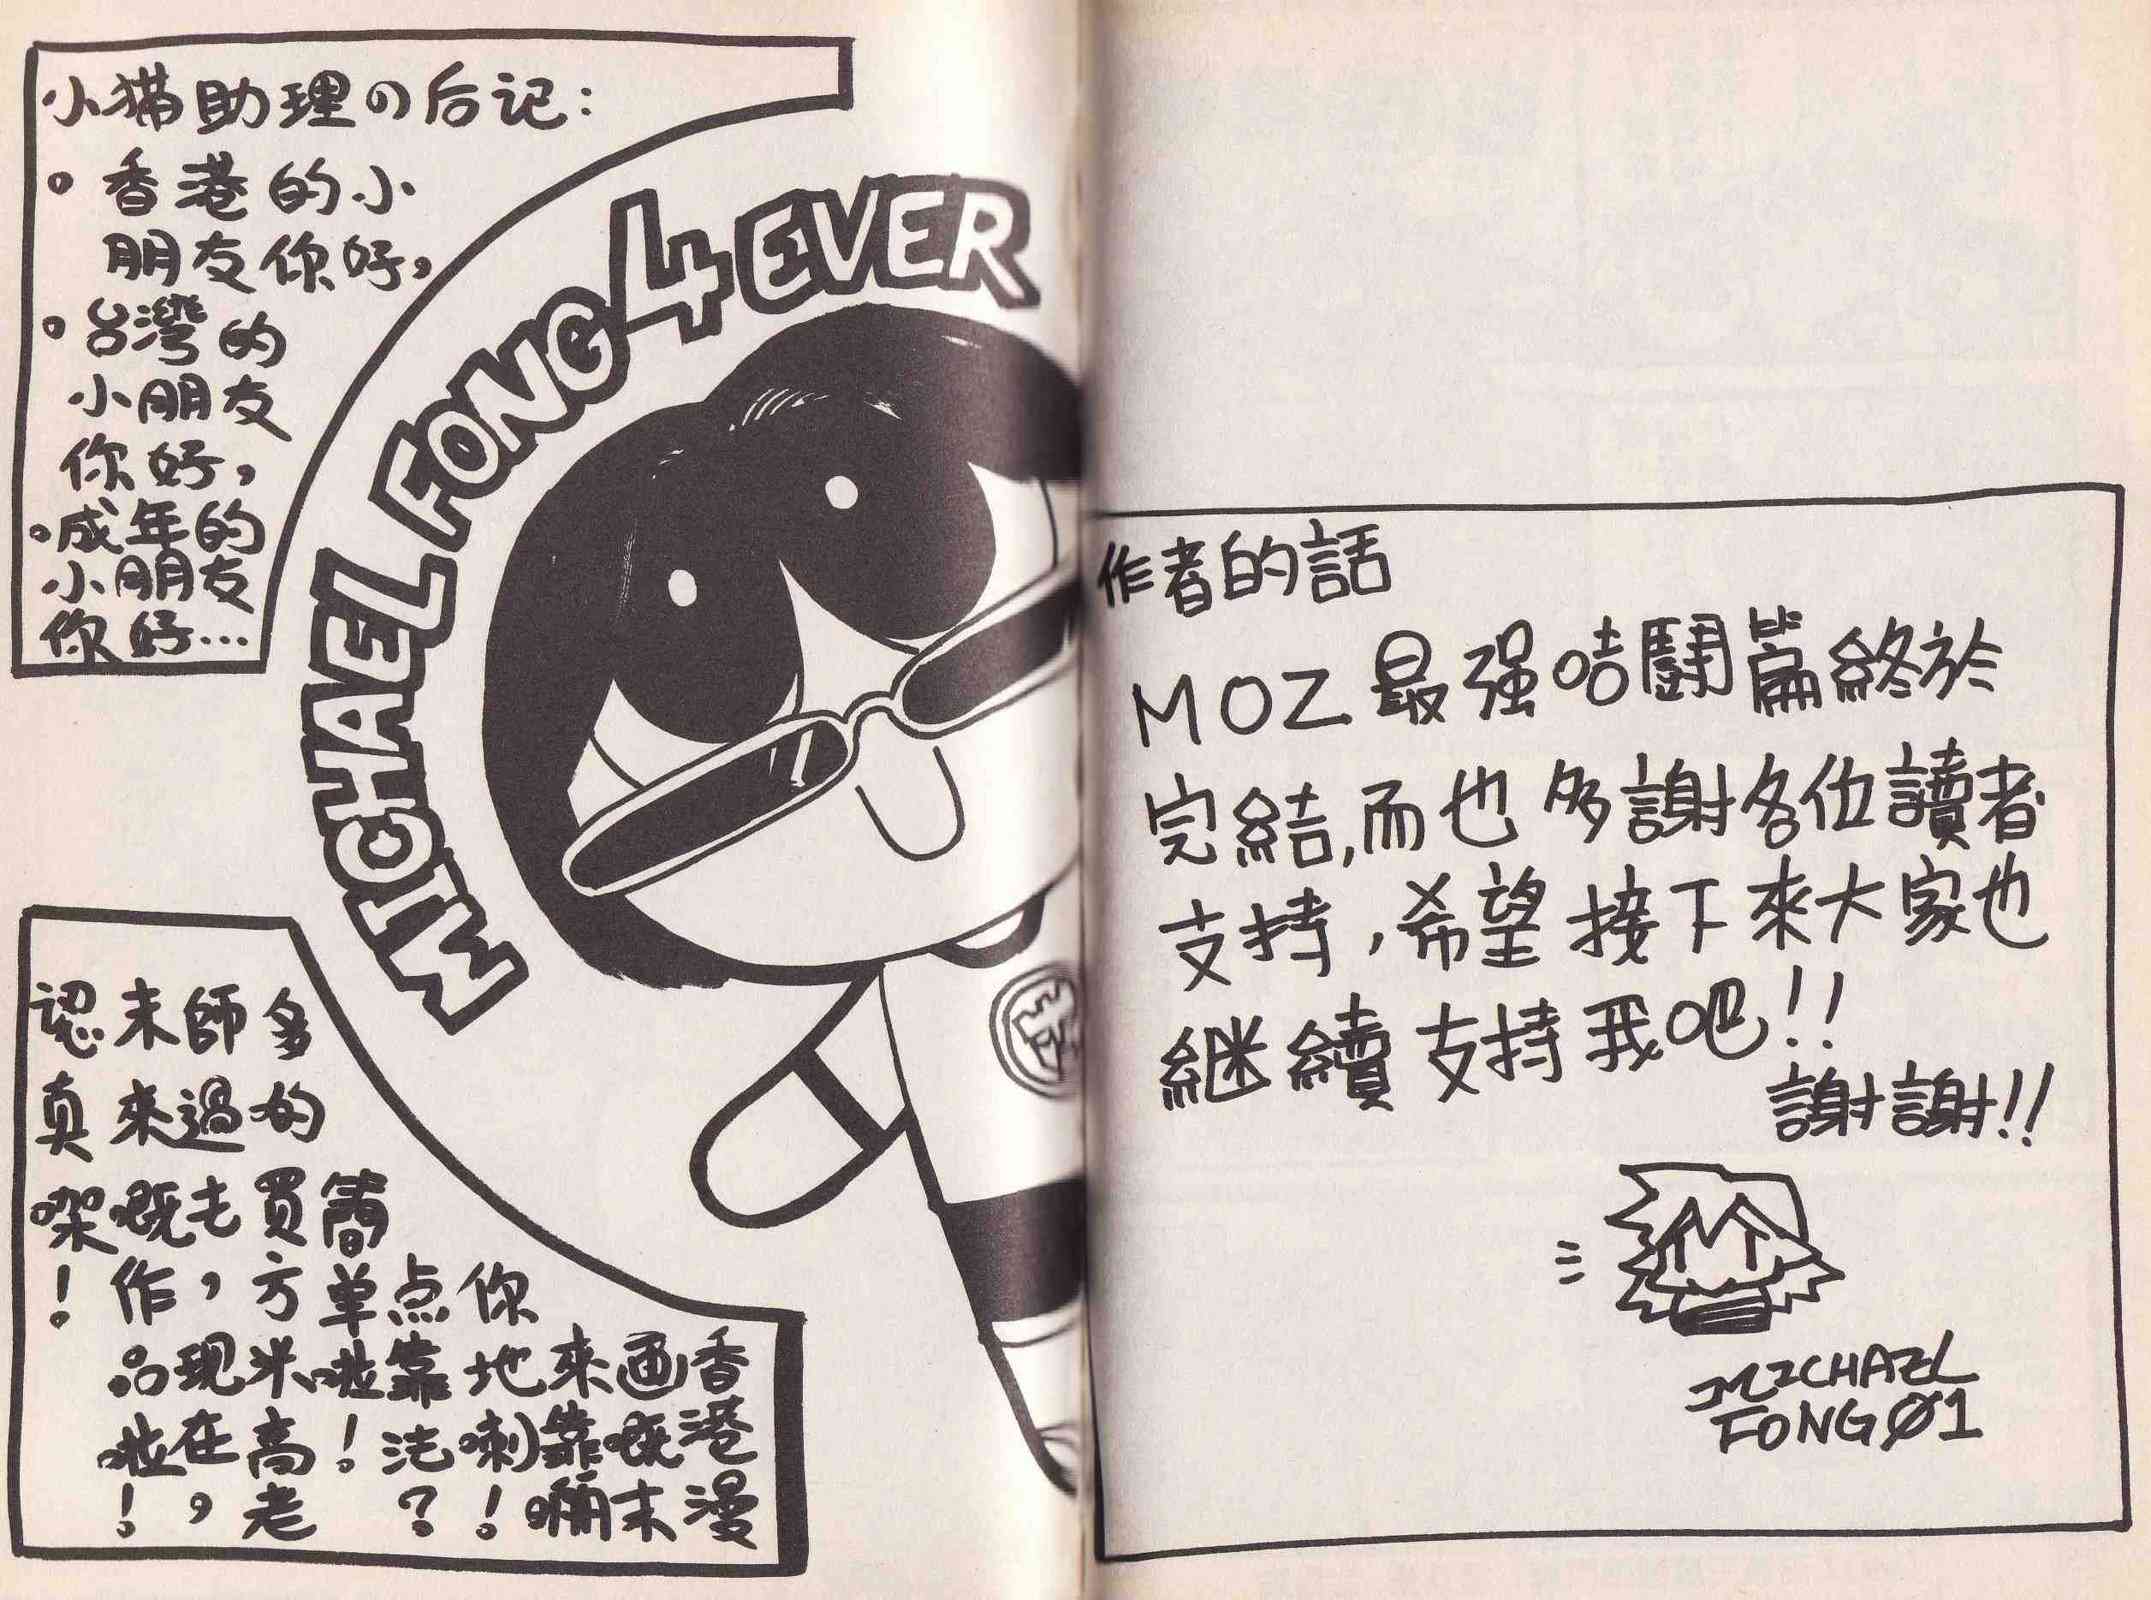 小猫助理の后记：
。香港的小
朋友你好，
。台灣的
小朋友
你好，
。成年的
小朋友
你好…
MICHAEL FONG 4 EVER
香港漫
画嘅未
來靠
你地喇！
点靠法？
簡单啦！
多的買方米高老
師過去，現在，
未來嘅作品啦！
認真㗎！
作者的話
MOZ最强咭鬪篇終於
完結，而也多謝各位讀者
支持，希望接下來大家也
継續支持我吧!!
謝謝!!
MICHAEL
FONG Ø1